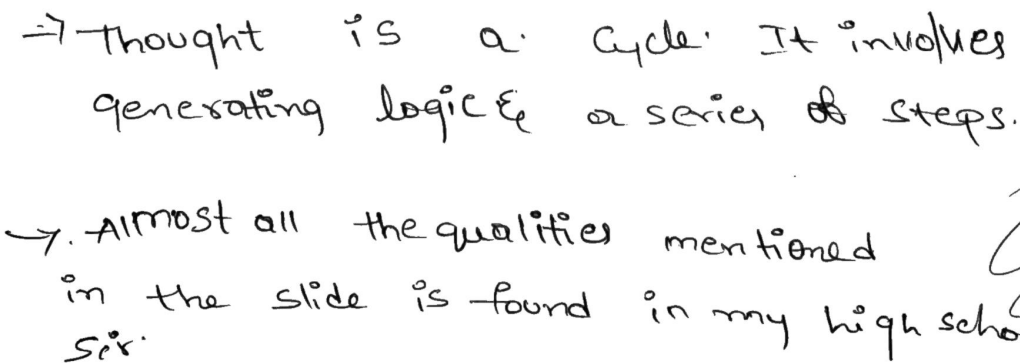 ⇒ Thought is a cycle. It involves
generating logic & a series of steps.
→. Almost all the qualities mentioned
in the slide is found in my high scho
Sir.